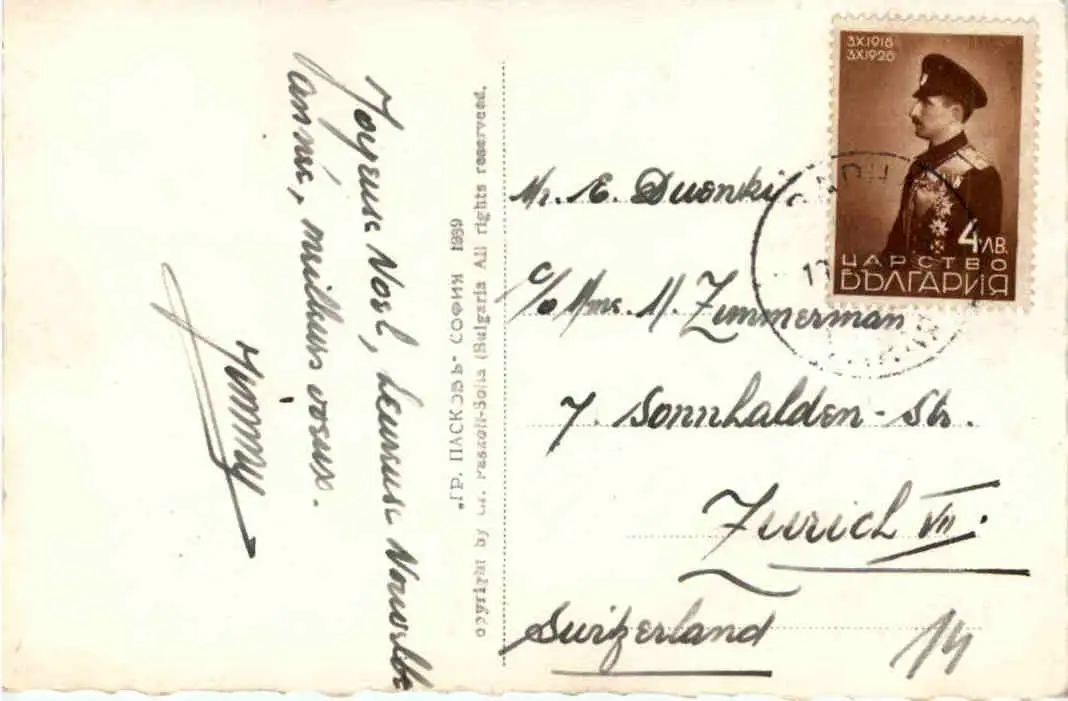 Joyeuse Noël, heureuse Nouvelle
année, meilleurs voeux.
Jimmy
"ГР. ПАСКОВЪ" СОФИЯ 1939
Copyright by Gr. Paskoff-Sofia (Bulgaria All rights reserved.
3X1918
3X1928
4 ЛВ.
ЦАРСТВО
БЪЛГАРИЯ
Mr. E. Duenki,
c/o Mme. M. Zimmerman
7. Sonnhalden-Str.
Zurich VII.
Switzerland
14